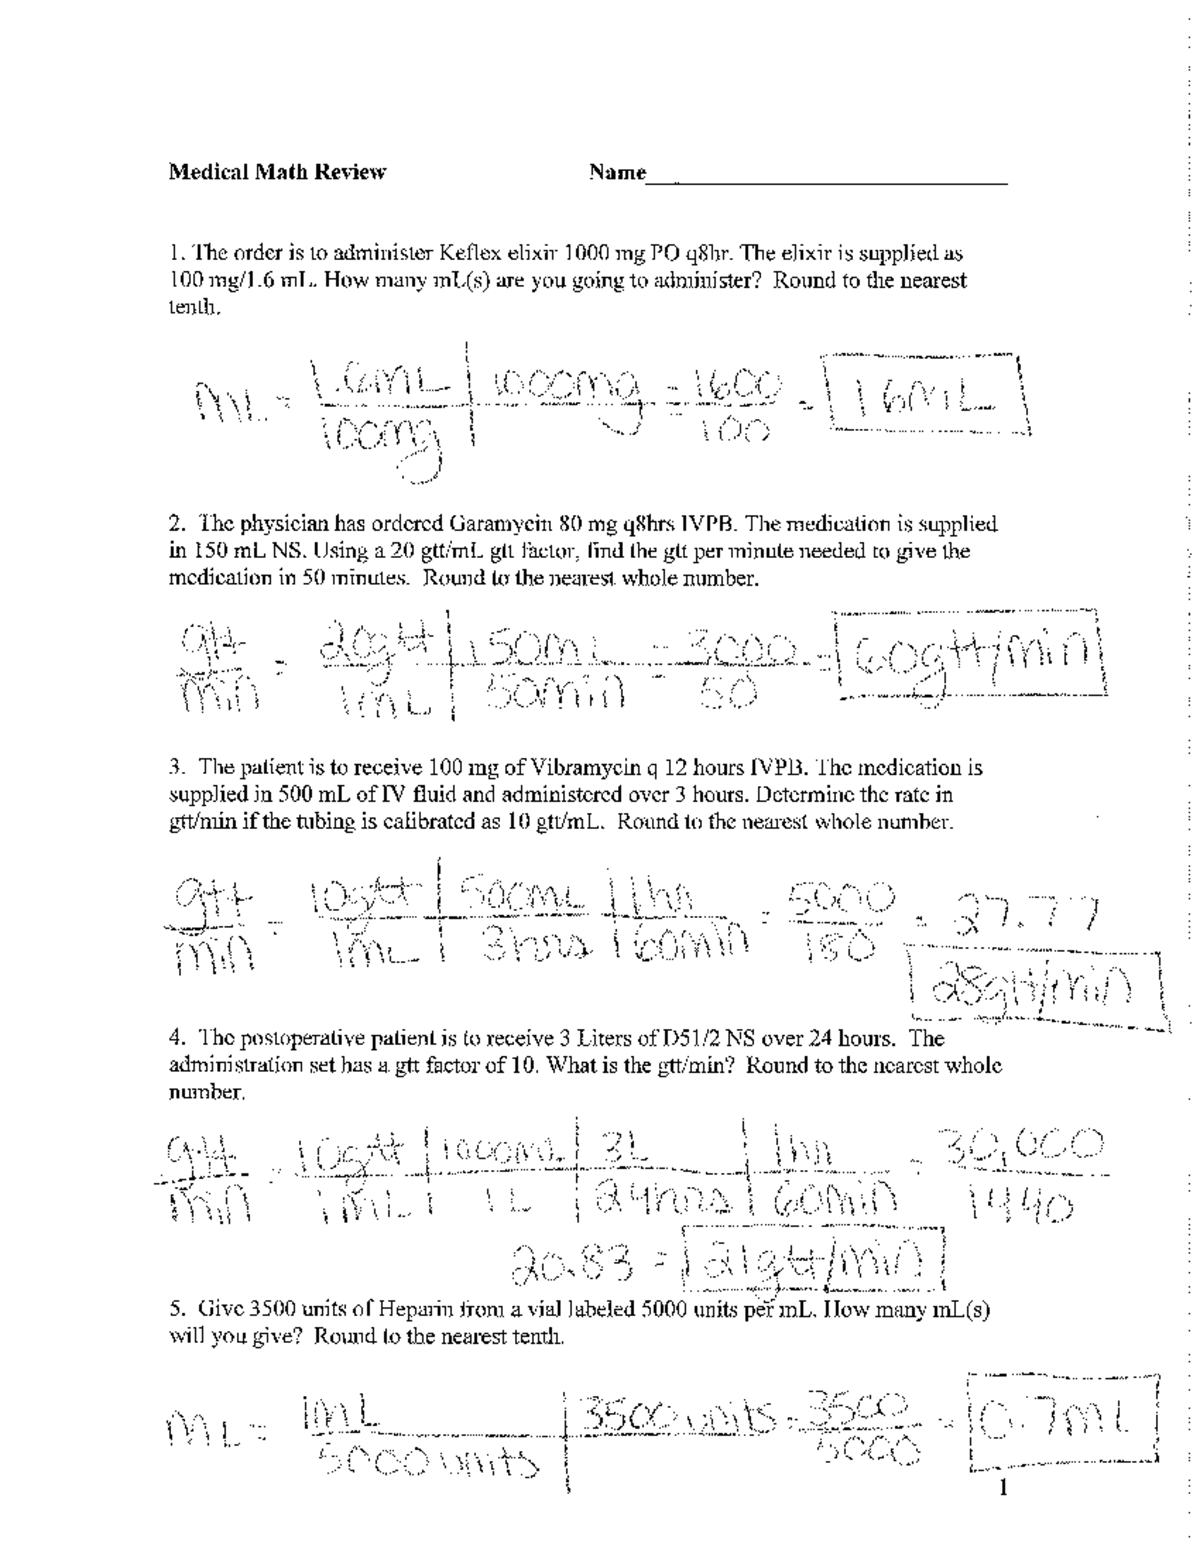 Medical Math Review Name
1. The order is to administer Keflex elixir 1000 mg PO q8hr. The elixir is supplied as
100 mg/1.6 mL. How many mL(s) are you going to administer? Round to the nearest
tenth.
mL = 1.6mL | 1000mg = 1600 = 16mL
100mg | 100
2. The physician has ordered Garamycin 80 mg q8hrs IVPB. The medication is supplied
in 150 mL NS. Using a 20 gtt/mL gtt factor, find the gtt per minute needed to give the
medication in 50 minutes. Round to the nearest whole number.
gtt = 20gtt | 150mL = 3000 = 60gtt/min
min 1mL | 50min 50
3. The patient is to receive 100 mg of Vibramycin q 12 hours IVPB. The medication is
supplied in 500 mL of IV fluid and administered over 3 hours. Determine the rate in
gtt/min if the tubing is calibrated as 10 gtt/mL. Round to the nearest whole number.
gtt = 10gtt | 500mL | 1hr = 5000 = 27.77
min 1mL | 3hrs | 60min 180
28gtt/min
4. The postoperative patient is to receive 3 Liters of D51/2 NS over 24 hours. The
administration set has a gtt factor of 10. What is the gtt/min? Round to the nearest whole
number.
gtt = 10gtt | 1000mL | 3L | 1hr = 30,000
min 1mL | 1L | 24hrs | 60min 1440
20.83 = 21gtt/min
5. Give 3500 units of Heparin from a vial labeled 5000 units per mL. How many mL(s)
will you give? Round to the nearest tenth.
mL = 1mL | 3500 units = 3500 = 0.7mL
5000 units | 5000
1